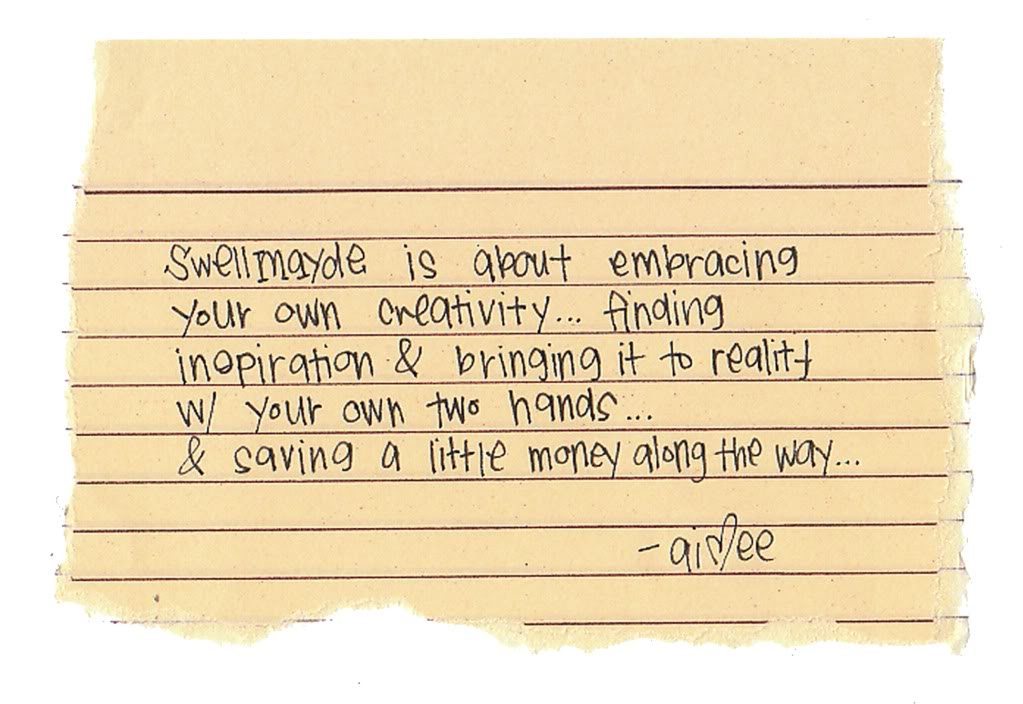 Swellmayde is about embracing
your own creativity... finding
inspiration & bringing it to reality
w/ your own two hands...
& saving a little money along the way...
- ai♡ee